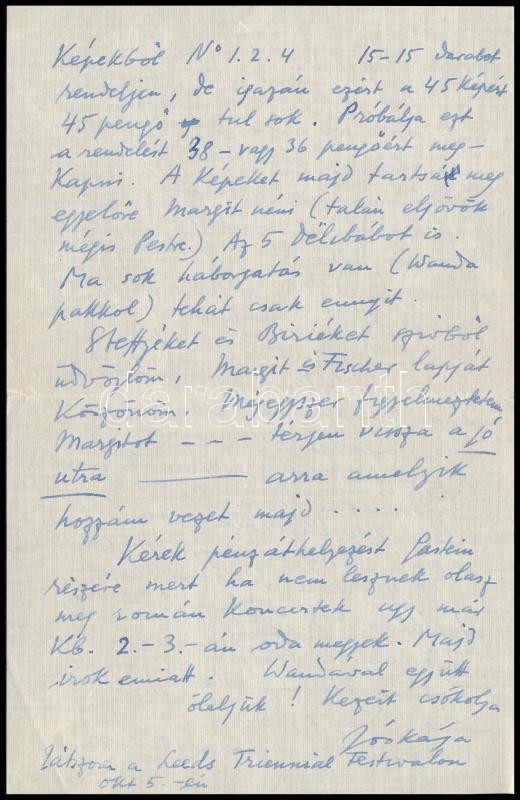 Képekből No 1. 2. 4 15-15 darabot
rendeljen, de igazán ezért a 45 képért
45 pengő tul sok. Próbálja ezt
a rendelést 38 - vagy 36 pengőért meg-
kapni. A képeket majd tartsák meg
egyelőre Margit néni (talán eljövök
mégis Pestre.) Az 5 Délibábot is.
Ma sok háborgatás van (Wanda
pakkol) tehát csak ennyit.
Steffjéket és Biriéket szivből
üdvözlöm, Margit és Fischer lapját
köszönöm. Mégegyszer figyelmeztetem
Margitot - - - térjen vissza a jó
utra ——— arra amelyik
hozzám vezet majd . . . . .
Kérek pénzáthelyezést Gastein
részére mert ha nem lesznek olasz
meg román koncertek ugy már
kb. 2.-3.-án oda megyek. Majd
irok emiatt. Wandával együtt
öleljük! Kezeit csókolja
Jóskája
Játszom a Leeds Triennial Festivalon
okt 5.-én
darabanth